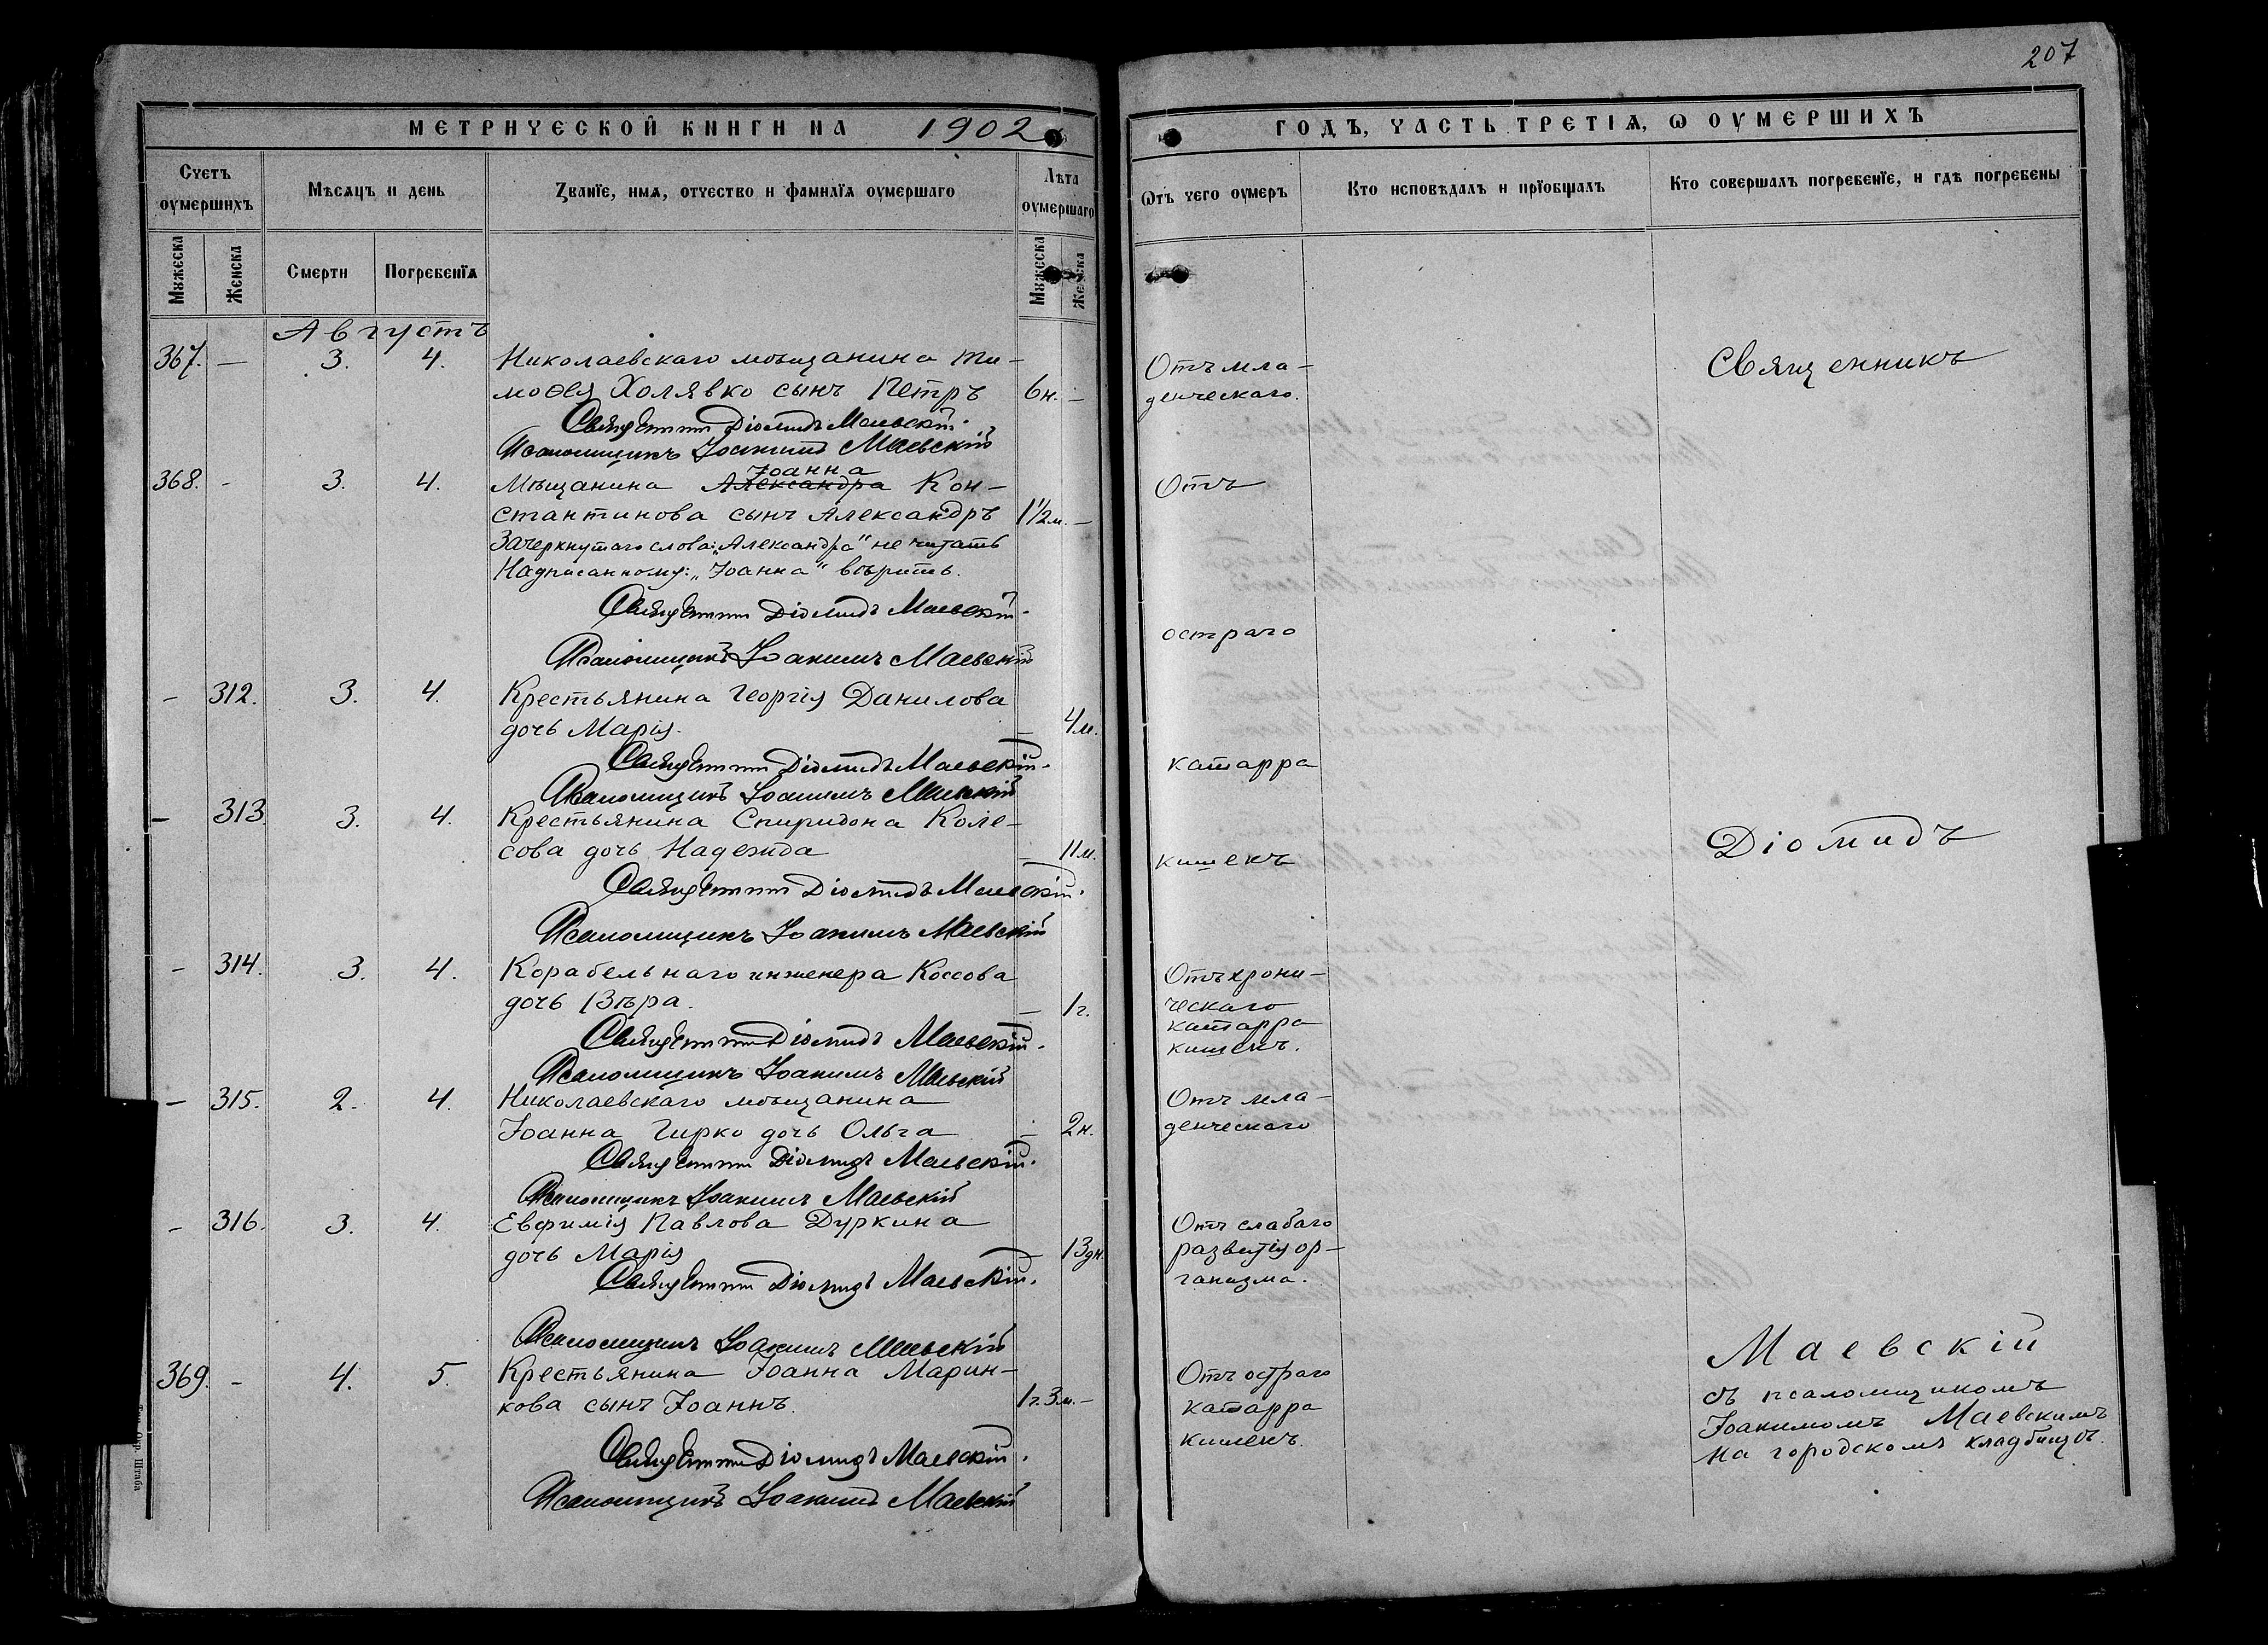 207
МЕТРИЧЕСКОЙ КНИГИ НА 1902
ГОДЪ, ЧАСТЬ ТРЕТІѦ, Ѡ ОУМЕРШИХЪ
Счетъ оумершихъ
Мѣсяцъ и день
Званїе, имѧ, отчество и фамилїѧ оумершаго
Лѣта оумершаго
Ѿтъ чего оумеръ
Кто исповѣдалъ и прїобщалъ
Кто совершалъ погребенїе, и гдѣ погребены
Мꙋжеска
Женска
Смерти
Погребенїѧ
Мꙋжеска
Женска
Августъ
367. — 3. 4. Николаевскаго мѣщанина Ти-
моѳея Холявко сынъ Петръ 6н. —
Священникъ Діомидъ Маевскій.
Псаломщикъ Іоакимъ Маевскій
Іоанна
368. - 3. 4. Мѣщанина Александра Кон-
стантинова сынъ Александръ 1½м. —
Зачеркнутаго слова: „Александра" не читать
Надписанному: „Іоанна" вѣрить.
Священникъ Діомидъ Маевскій.
Псаломщикъ Іоакимъ Маевскій
- 312. 3. 4. Крестьянина Георгія Данилова
дочь Марія. — 4м.
Священникъ Діомидъ Маевскій.
Псаломщикъ Іоакимъ Маевскій
— 313. 3. 4. Крестьянина Спиридона Коле-
сова дочь Надежда — 11м.
Священникъ Діомидъ Маевскій.
Псаломщикъ Іоакимъ Маевскій
- 314. 3. 4. Корабельнаго инженера Коссова
дочь Вѣра. — 1г.
Священникъ Діомидъ Маевскій.
Псаломщикъ Іоакимъ Маевскій
— 315. 2. 4. Николаевскаго мѣщанина
Іоанна Гирко дочь Ольга — 2н.
Священникъ Діомидъ Маевскій.
Псаломщикъ Іоакимъ Маевскій
- 316. 3. 4. Евфимія Павлова Дуркина
дочь Марія — 13дн.
Священникъ Діомидъ Маевскій.
Псаломщикъ Іоакимъ Маевскій
369. - 4. 5. Крестьянина Іоанна Марин-
кова сынъ Іоаннъ. 1г.3м. —
Священникъ Діомидъ Маевскій.
Псаломщикъ Іоакимъ Маевскій
Отъ мла-
денческаго.
Отъ
остраго
катарра
кишекъ
Отъ хрони-
ческаго
катарра
кишекъ.
Отъ мла-
денческаго
Отъ слабаго
развитія ор-
ганизма.
Отъ остраго
катарра
кишекъ.
Священникъ
Діомидъ
Маевскій
съ псаломщикомъ
Іоакимомъ Маевскимъ
на городскомъ кладбищѣ.